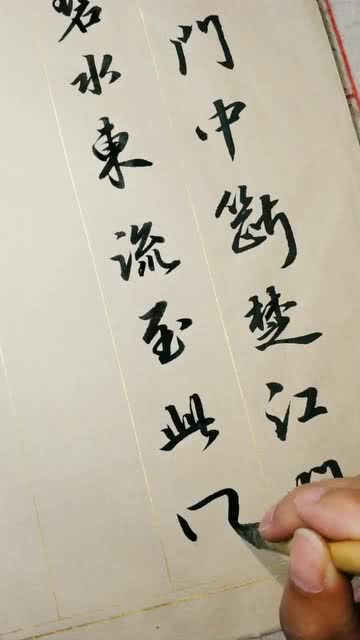 門中斷楚江
碧水東流至此